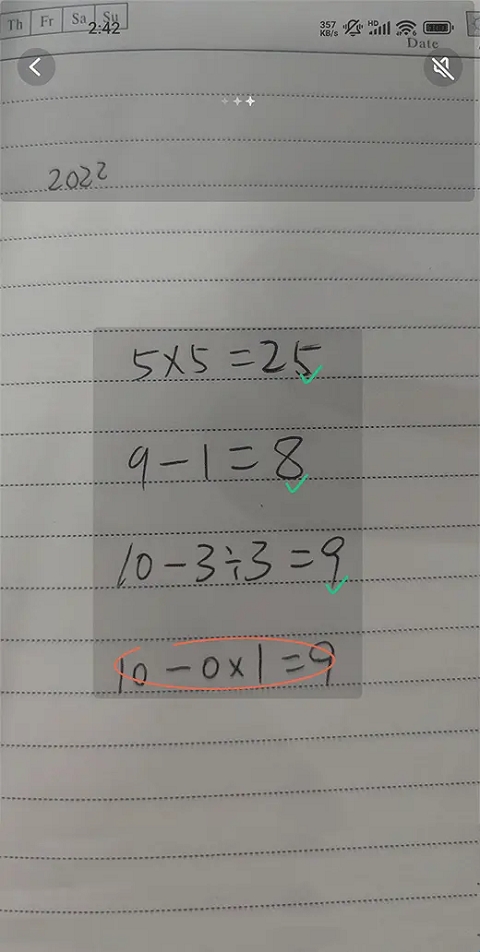 Th Fr Sa Su
2:42 357 KB/s HD 100
Date
2022
5×5=25
9-1=8
10-3÷3=9
10-0×1=9